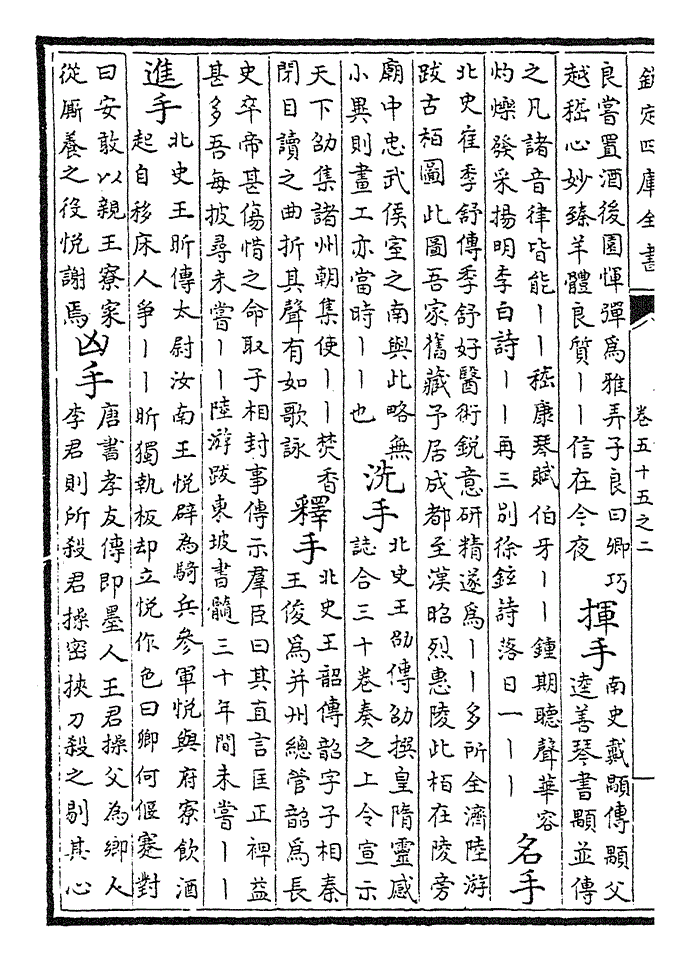 欽定四庫全書 卷五十五之二
良嘗置酒後園惲彈爲雅弄子良曰卿巧
越嵇心妙臻羊體良質丨丨信在今夜
揮手
南史戴顒傳顒父
逵善琴書顒並傳
之凡諸音律皆能丨丨嵇康琴賦伯牙丨丨鍾期聽聲華容
灼爍發采揚明李白詩丨丨再三别徐鉉詩落日一丨丨
名手
北史崔季舒傳季舒好醫術銳意研精遂爲丨丨多所全濟陸游
跋古栢圖此圖吾家舊藏予居成都至漢昭烈惠陵此栢在陵旁
廟中忠武侯室之南與此略無
小異則畫工亦當時丨丨也
洗手
北史王劭傳劭撰皇隋靈感
誌合三十卷奏之上令宣示
天下劭集諸州朝集使丨丨焚香
閉目讀之曲折其聲有如歌詠
釋手
北史王韶傳韶字子相秦
王俊爲并州總管韶爲長
史卒帝甚傷惜之命取子相封事傳示羣臣曰其直言匡正裨益
甚多吾每披尋未嘗丨丨陸游跋東坡書髓三十年間未嘗丨丨
進手
北史王昕傳太尉汝南王悅辟為騎兵參軍悅與府寮飲酒
起自移床人爭丨丨昕獨執板却立悅作色曰卿何偃蹇對
曰安敢以親王寮家
從厮養之役悅謝焉
凶手
唐書孝友傳即墨人王君操父為鄉人
李君則所殺君操密挾刀殺之剔其心